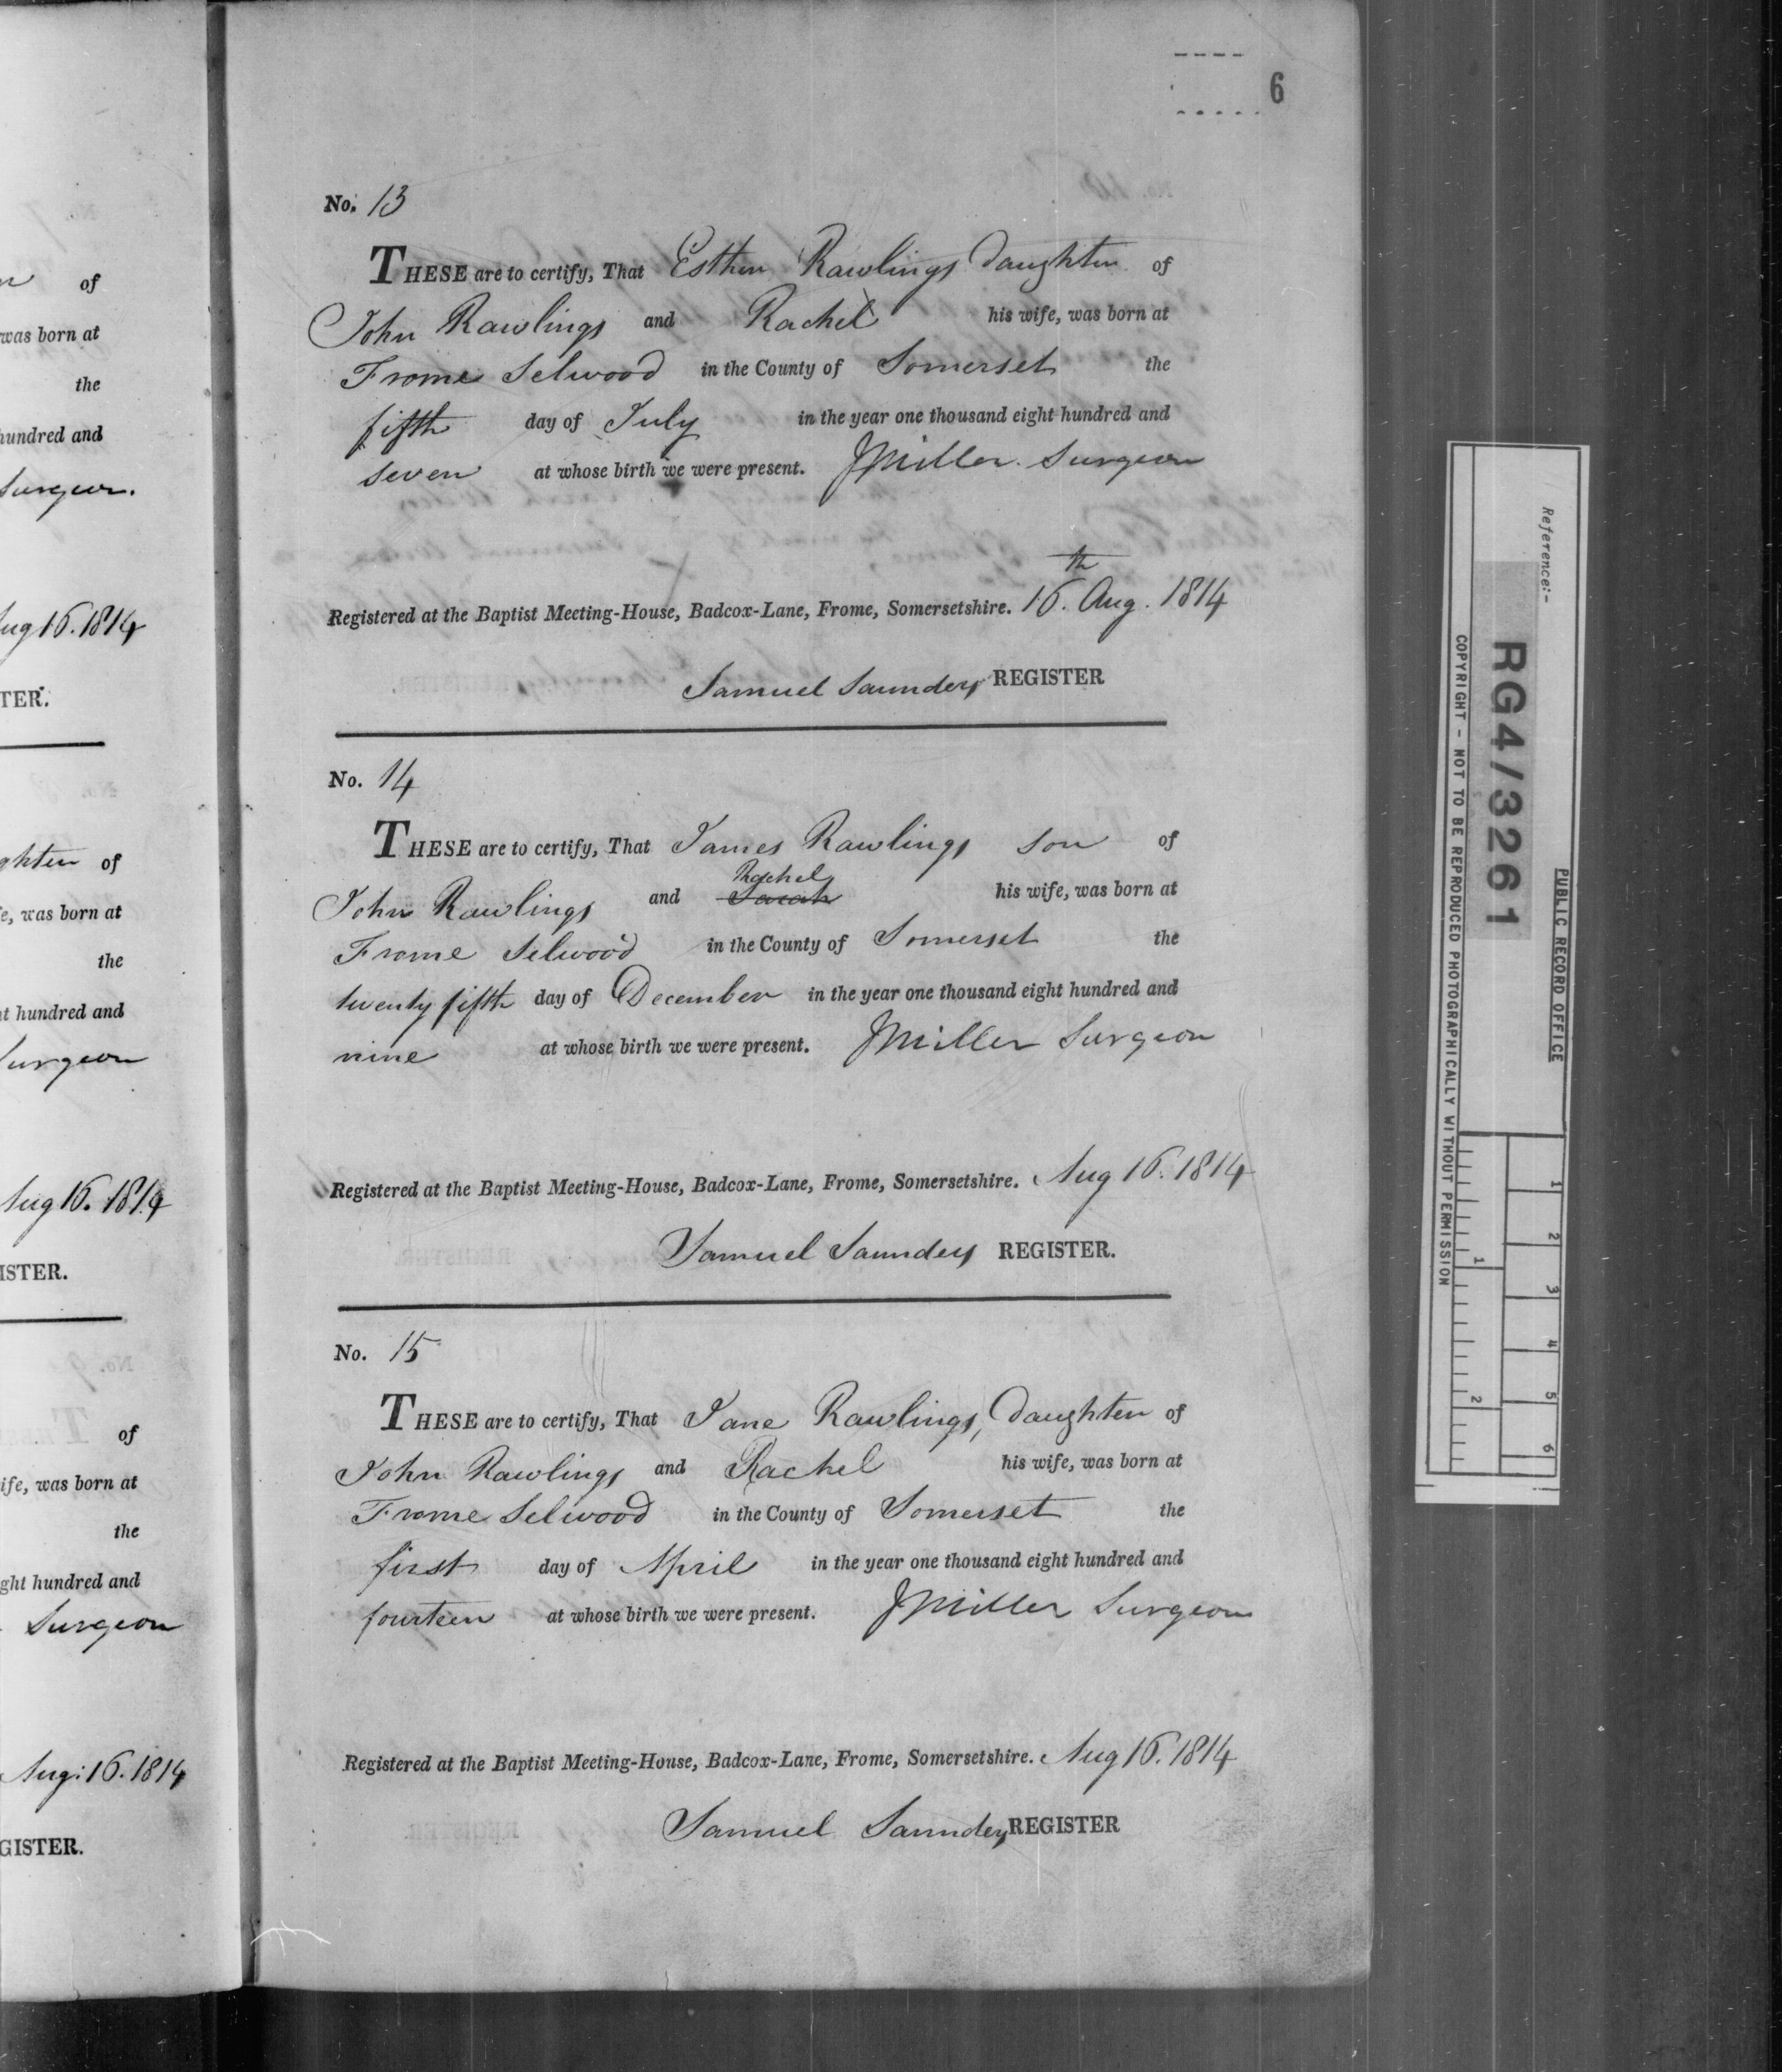 of
was born at
the
hundred and
Surgeon.
Aug 16. 1814
TER.
ghter of
e, was born at
the
t hundred and
Surgeon
Aug 16. 1814
ISTER.
of
ife, was born at
the
ght hundred and
Surgeon
Aug: 16. 1814
GISTER.
6
No. 13
THESE are to certify, That Esther Rawlings Daughter of
John Rawlings and Rachel his wife, was born at
Frome Selwood in the County of Somerset the
fifth day of July in the year one thousand eight hundred and
seven at whose birth we were present. J Miller. Surgeon
Registered at the Baptist Meeting-House, Badcox-Lane, Frome, Somersetshire. 16th. Aug. 1814
Samuel Saunders REGISTER
No. 14
THESE are to certify, That James Rawlings son of
Rachel
John Rawlings and Sarah his wife, was born at
Frome Selwood in the County of Somerset the
twenty fifth day of December in the year one thousand eight hundred and
nine at whose birth we were present. J Miller Surgeon
Registered at the Baptist Meeting-House, Badcox-Lane, Frome, Somersetshire. Aug 16. 1814
Samuel Saunders REGISTER.
No. 15
THESE are to certify, That Jane Rawlings, Daughter of
John Rawlings and Rachel his wife, was born at
Frome Selwood in the County of Somerset the
first day of April in the year one thousand eight hundred and
fourteen at whose birth we were present. J Miller Surgeon
Registered at the Baptist Meeting-House, Badcox-Lane, Frome, Somersetshire. Aug 16. 1814
Samuel Saunders REGISTER
PUBLIC RECORD OFFICE
1 2 3 4 5 6
Reference:-
RG4/3261
1 2
COPYRIGHT - NOT TO BE REPRODUCED PHOTOGRAPHICALLY WITHOUT PERMISSION